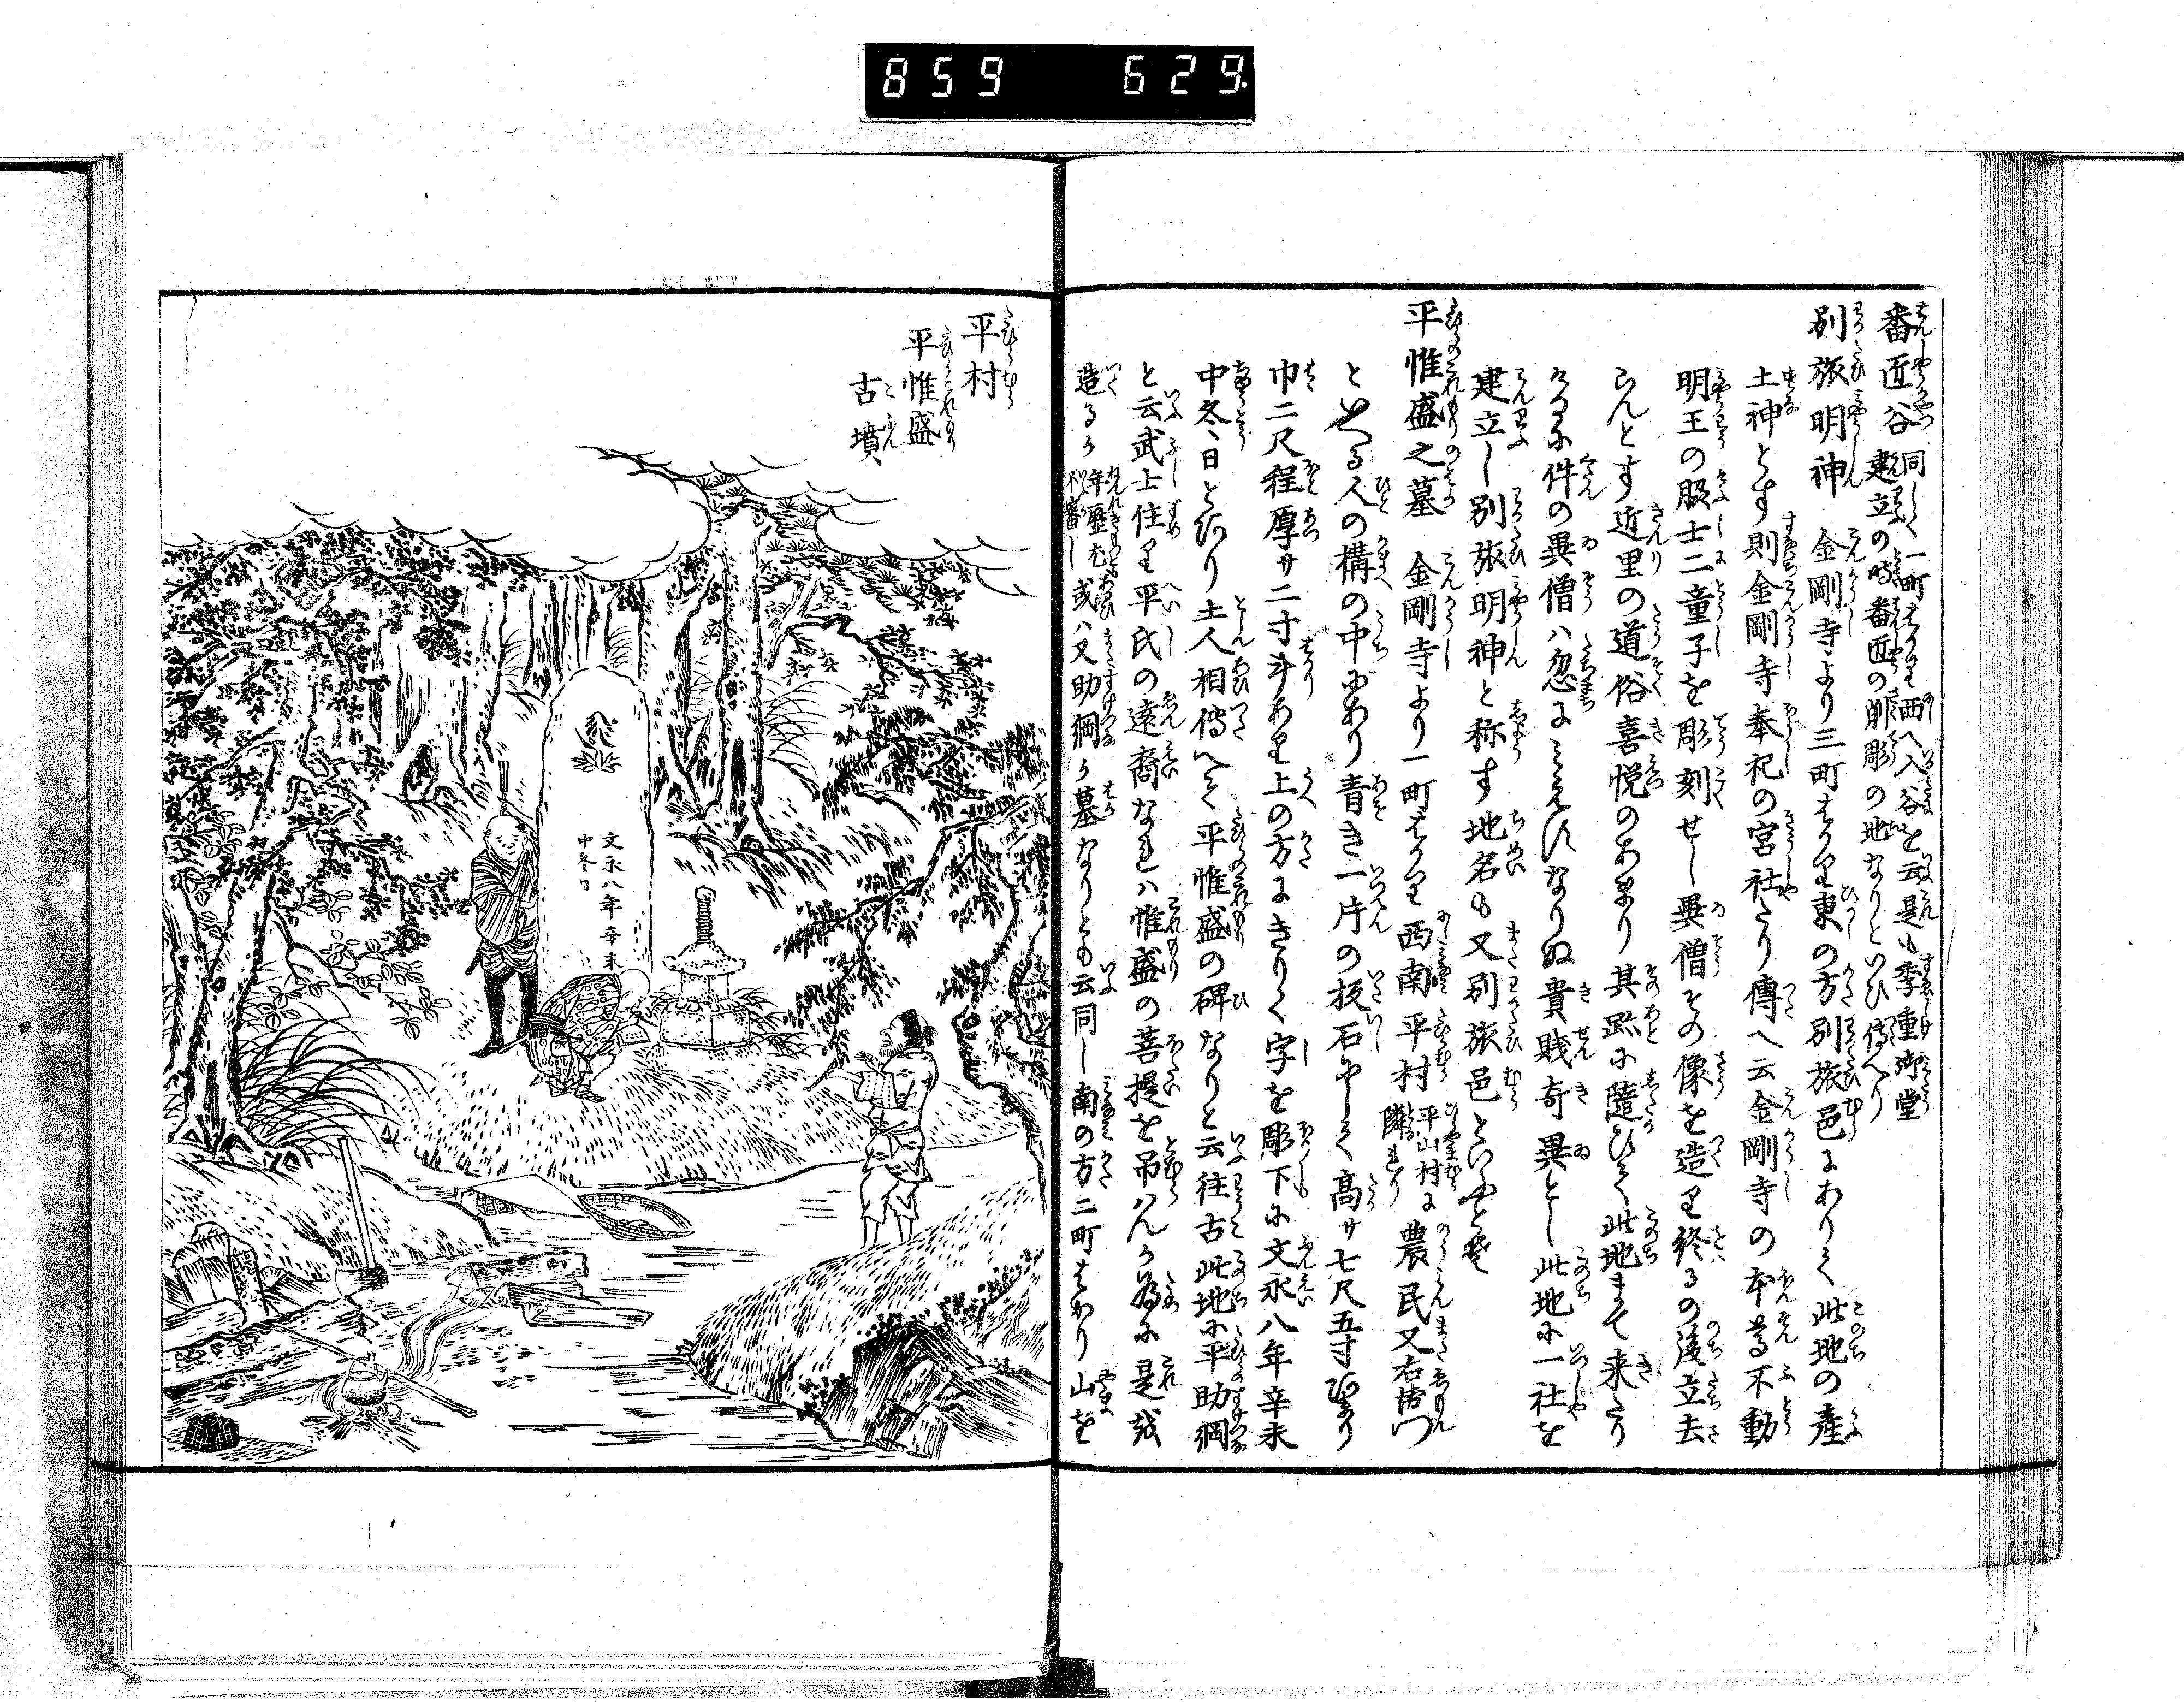 859 629
番匠谷 同しく一町はかり西へ入谷を云是も季重御堂
建立の時番匠の削彫の地なりといひ傳へり
別旅明神 金剛寺より三町はかり東の方別旅邑にありて此地の産
土神とす則金剛寺奉祀の宮社たり傳へ云金剛寺の本尊不動
明王の脇士二童子を彫刻せし異僧その像を造り終るの後立去
らんとす近里の道俗喜悦のあまり其跡に隨ひて此地まて来たり
けるに件の異僧ハ忽にみえすなりぬ貴賤奇異とし此地に一社を
建立し別旅明神と称す地名も又別旅邑といふとそ
平惟盛之墓 金剛寺より一町はかり西南平村 平山村に隣れり 農民又右衛門
といへる人の構の中にあり青き一片の板石にして高サ七尺五寸はかり
巾二尺程厚サ二寸斗あり上の方にきりく字を彫下に文永八年辛未
中冬、日とあり土人相傳へて平惟盛の碑なりと云往古此地に平助綱
と云武士住り平氏の遠裔なれハ惟盛の菩提を吊はんか為に是を
造るか 年歴尤不審し 或ハ又助綱か墓なりとも云同し南の方二町はかり山を
平村
平惟盛
古墳、
文永八年辛未
中冬日